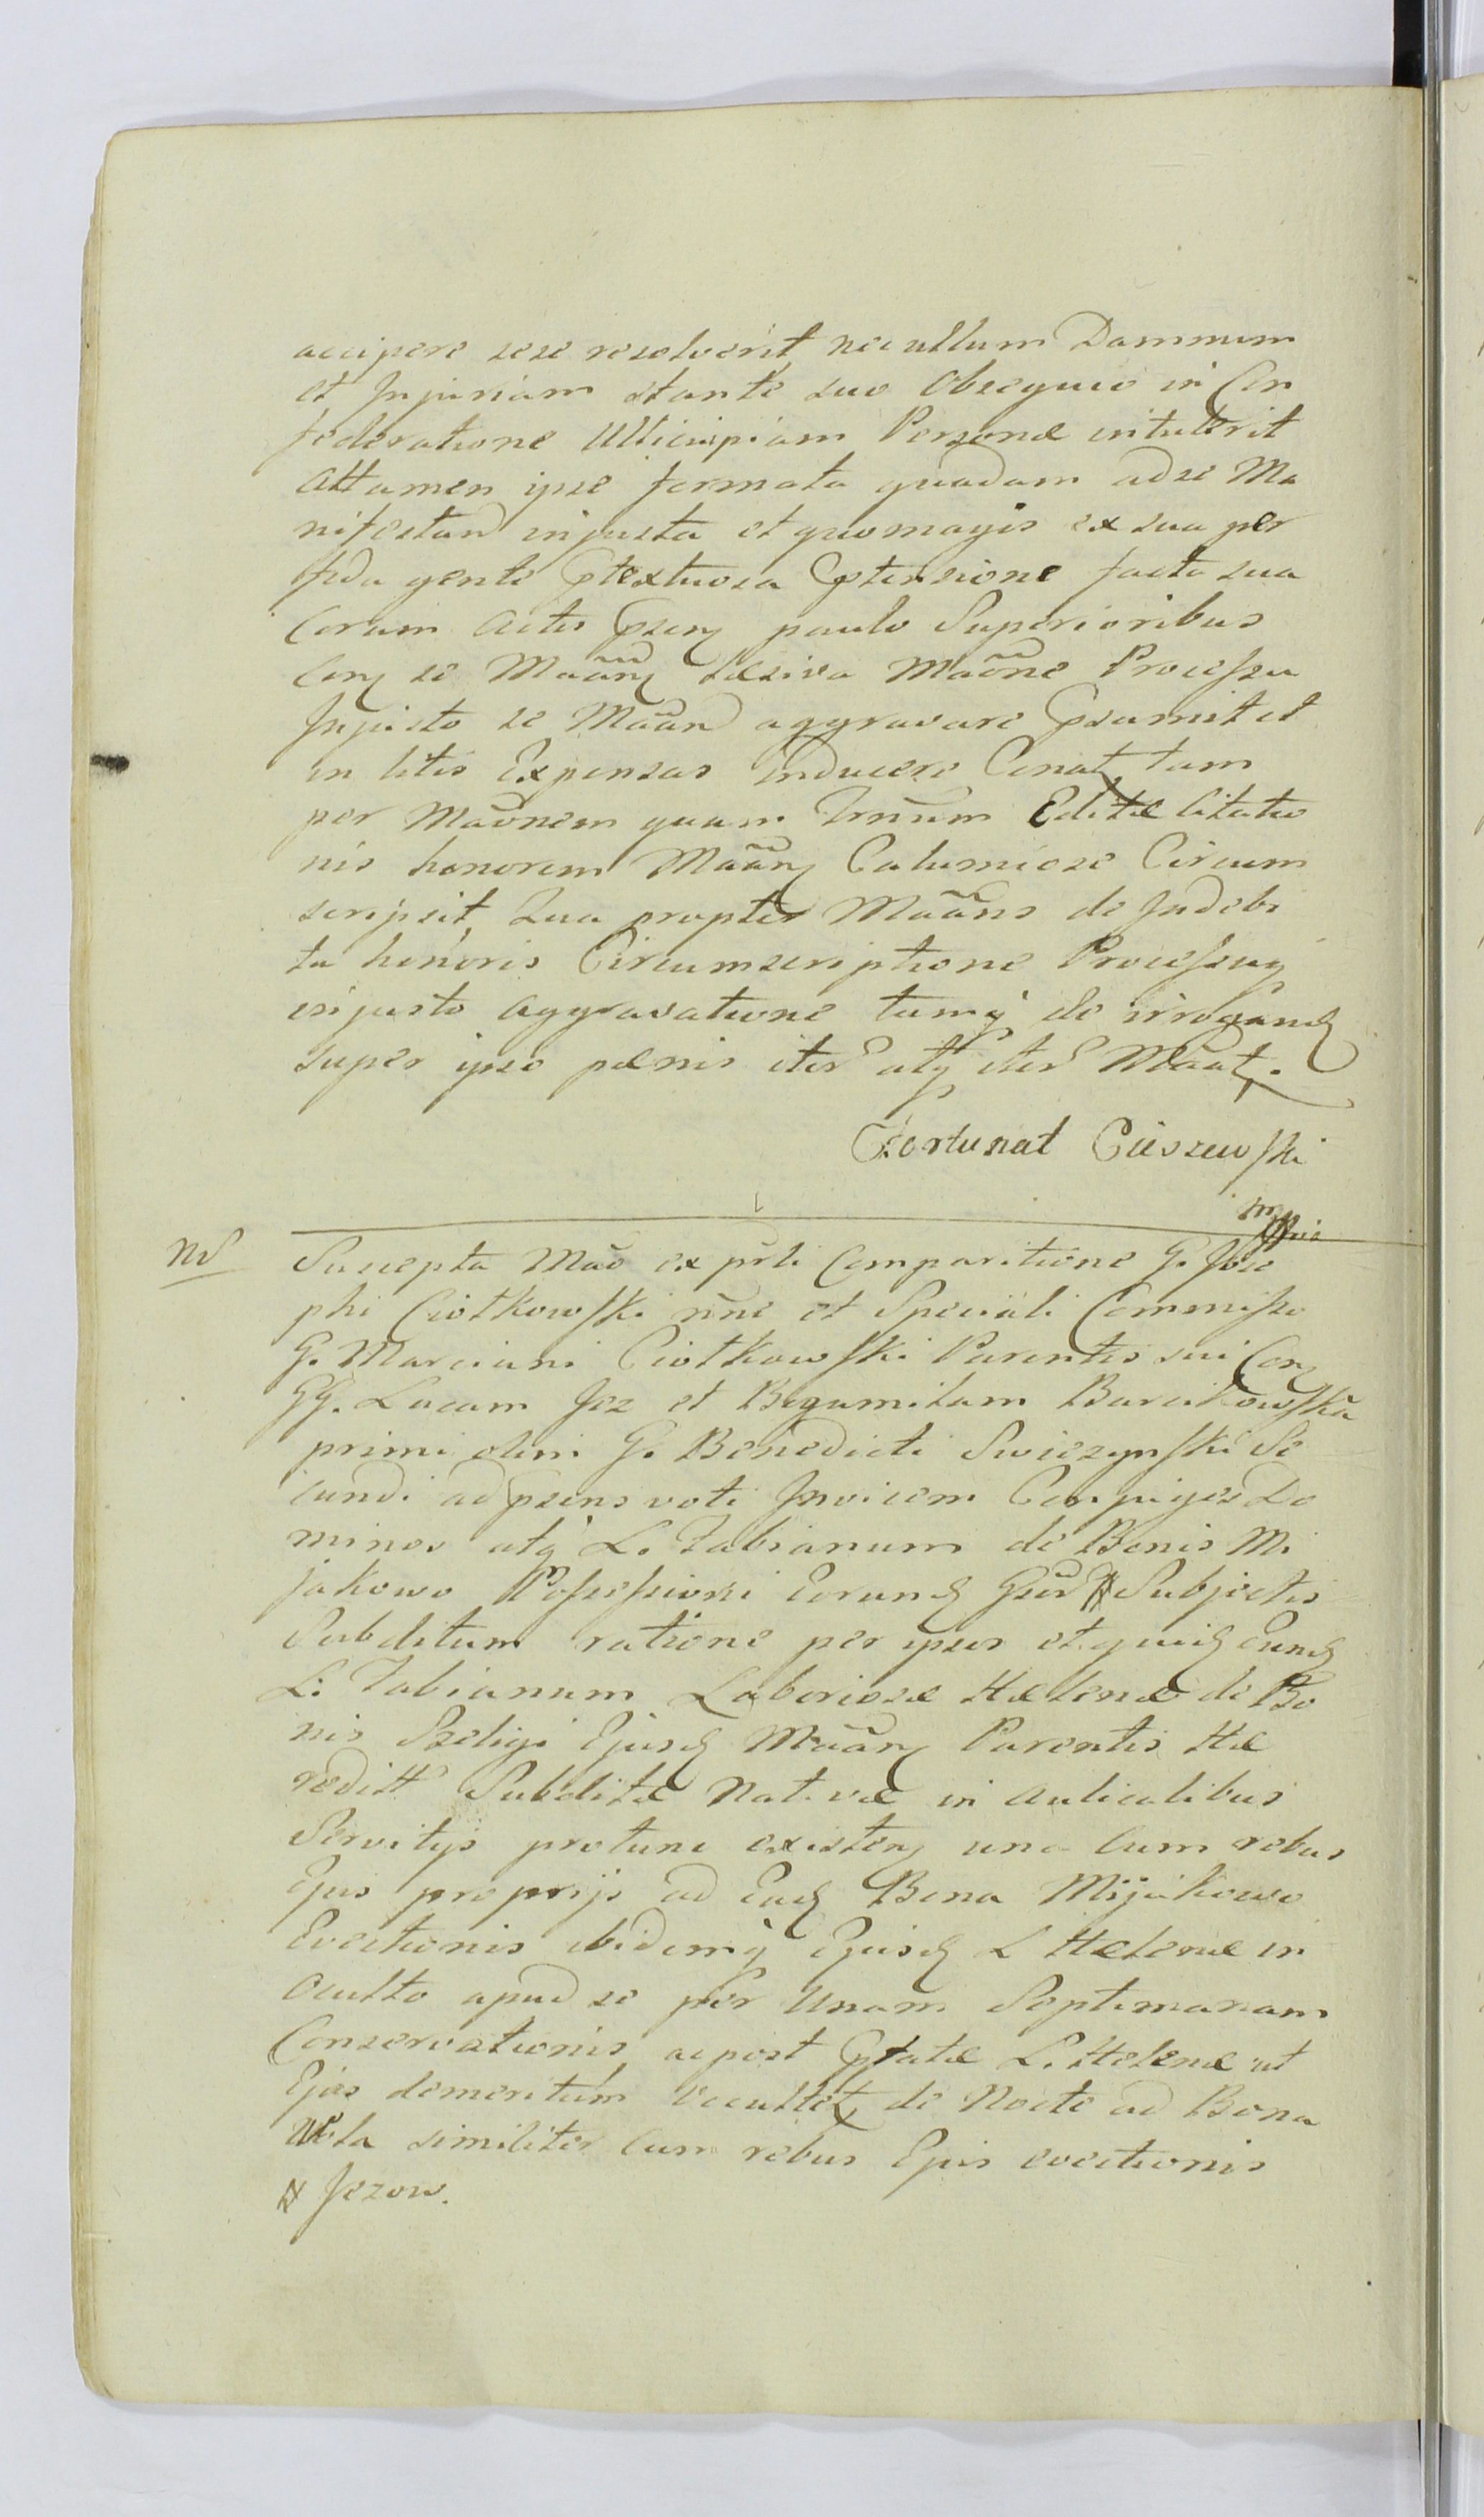 accipere sese resolverit nec ullum Damnum
et Injuriam stante suo Obsequio in Con
federatione Ullicuipiam Personæ intulerit
Attamen ipse formata quadam ad se Ma
nifestan injusta et quomagis ex sua per
fida gente Ptextuosa Ptensione facta sua
Coram Actis Psen paulo Superioribus
Con se Maãn læsiva Maõne Processu
Injusto se Maãn aggravare Psumit et
in litis Expensas inducere Conat, tam
per Maõnem quam Edittæ Citatio
nis honorem Maãn Calumiose Circum
scripsit, Qua propter Maãns de Indebi
ta honoris Circumscriptione Processuq
injusto aggravatione tumq de irrogand
super ipso pænis iter atq iter Maãt.
Fortunat Cieszewski
mpria
Nd
Suscepta Mão ex prli Comparitione G. Jose
phi Ciotkowski nne et Speciali Commisso
G. Marciani Ciotkowski Parentis sui Con
GG. Lucam Jez et Bogumilam Barcikowska
primi olim G. Benedicti Swiezynski Se
cundi ad psens voti Invicem Conjuges Do
minos atq L. Fabianum de Bonis Mi
jakowo Possessioni Eorund Gser # Subjectis
Subditum ratione per ipsos et quid Eund
L. Fabianum Laboriosæ Helenæ de Bo
nis Szeligi Ejusd Maãn Parentis Hæ
redit Subditæ Nativæ in Aulicalibus
Servitijs protunc existen una cum rebus
Ejus proprijs ad Ead Bona Mijakowo
Evectionis ibidemq Ejusd L Helenæ in
oculto apud se per Unam Septimanam
Conservationis ac post Pfatæ L. Helenæ ut
Ejus demeritum Occultet, de Nocte ad Bona
Wola similiter cum rebus Ejus evectionis
# Jezow.